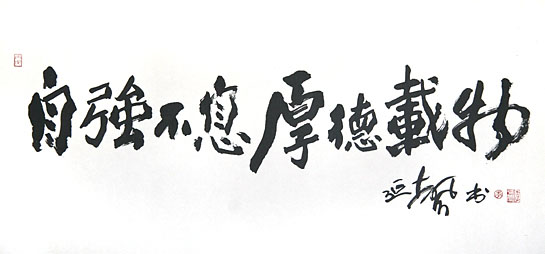 自強不息厚德載物